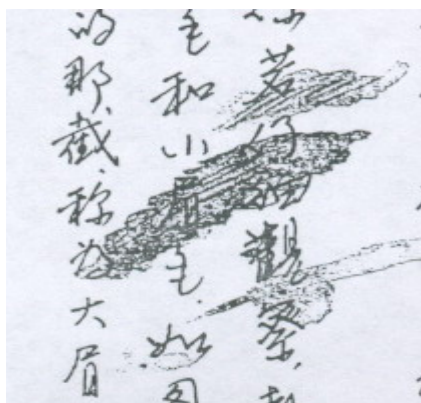 你若仔细觀察,
毛和小眉毛.如图
的那截,称为大眉